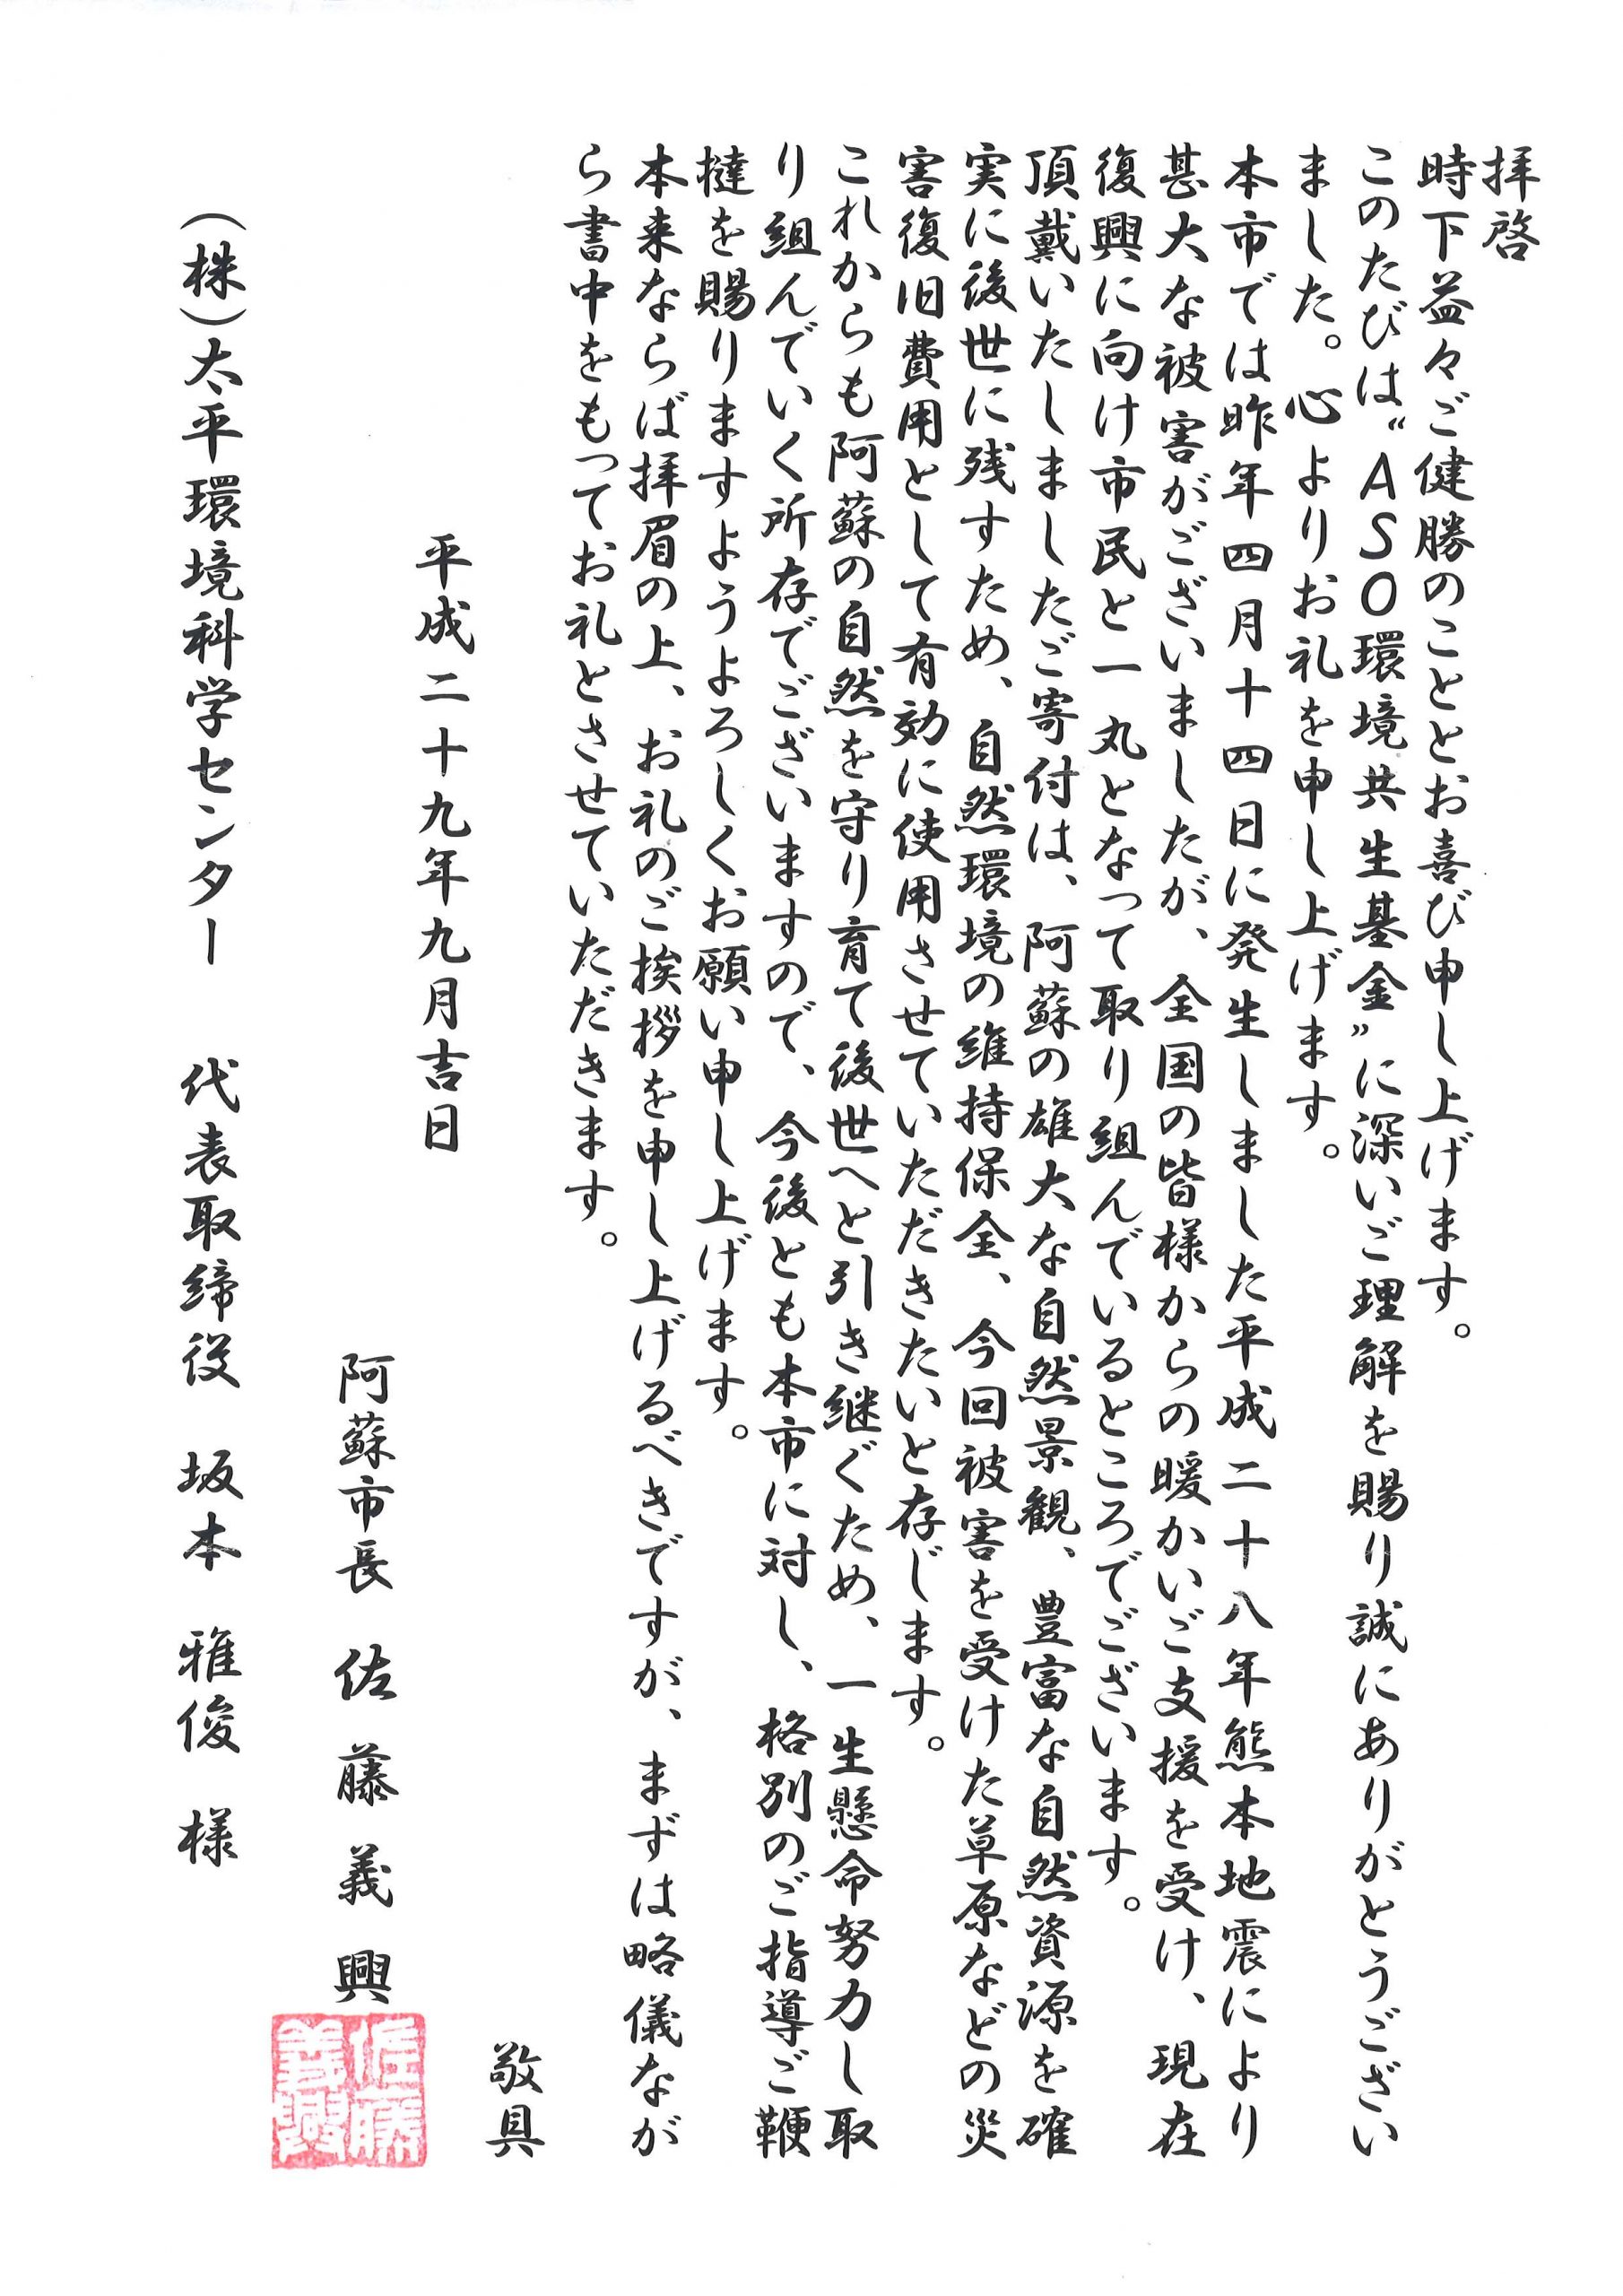 拝啓
時下益々ご健勝のこととお喜び申し上げます。
このたびは〝ASO環境共生基金〟に深いご理解を賜り誠にありがとうござい
ました。心よりお礼を申し上げます。
本市では昨年四月十四日に発生しました平成二十八年熊本地震により
甚大な被害がございましたが、全国の皆様からの暖かいご支援を受け、現在
復興に向け市民と一丸となって取り組んでいるところでございます。
頂戴いたしましたご寄付は、阿蘇の雄大な自然景観、豊富な自然資源を確
実に後世に残すため、自然環境の維持保全、今回被害を受けた草原などの災
害復旧費用として有効に使用させていただきたいと存じます。
これからも阿蘇の自然を守り育て後世へと引き継ぐため、一生懸命努力し取
り組んでいく所存でございますので、今後とも本市に対し、格別のご指導ご鞭
撻を賜りますようよろしくお願い申し上げます。
本来ならば拝眉の上、お礼のご挨拶を申し上げるべきですが、まずは略儀なが
ら書中をもってお礼とさせていただきます。
敬具
平成二十九年九月吉日
阿蘇市長 佐藤義興
佐藤
義興
（株）太平環境科学センター 代表取締役 坂本 雅俊 様